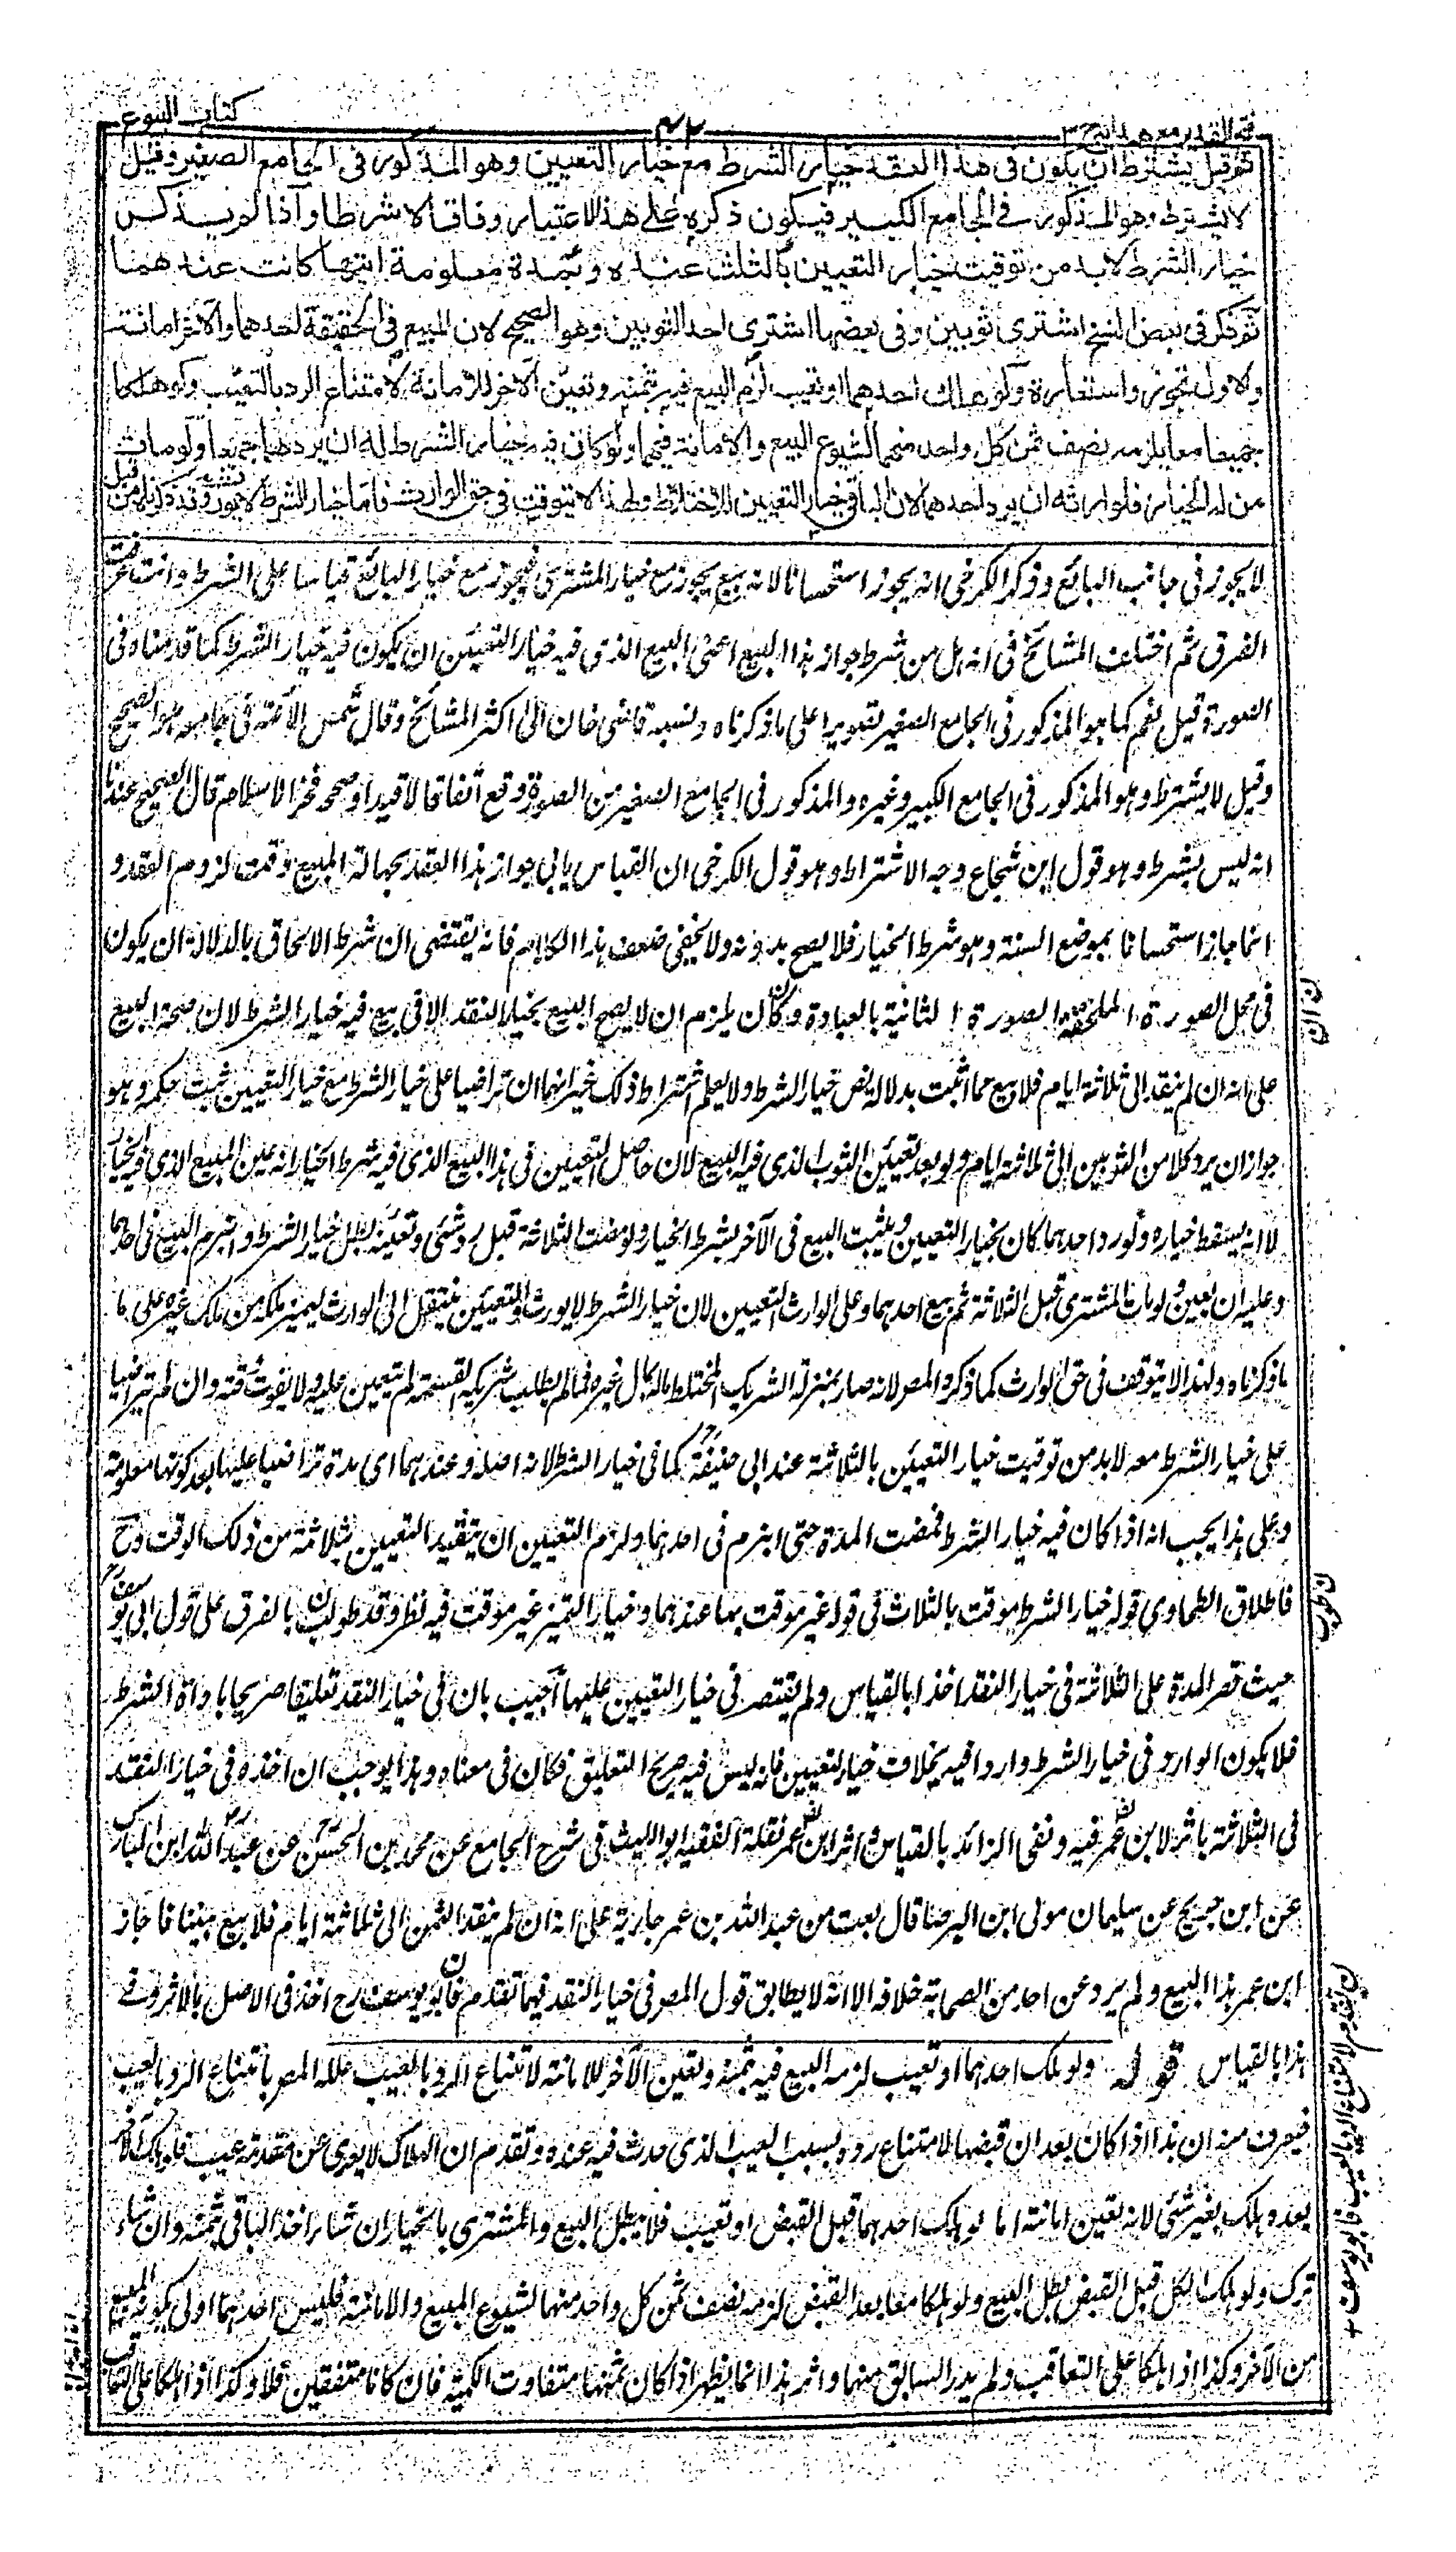 فتح القدير مع هداية ج ٣
كتاب البيوع
ثم قيل يشترط ان يكون في هذا العقد خيار الشرط مع خيار التعيين وهو المذكور في الجامع الصغير وقيل
لا يشترط وهو المذكور في الجامع الكبير فيكون ذكره على هذا الاعتبار وفاقا لا شرطا واذا لم يذكر
خيار الشرط لابد من توقيت خيار التعيين بالثلث عنده وبمدة معلومة ايتها كانت عندهما
ثم ذكر في بعض النسخ اشترى ثوبين وفي بعضها اشترى احد الثوبين وهو الصحيح لان المبيع في الحقيقة احدهما والآخر امانة
والاول تجوز واستعارة ولو هلك احدهما او تعيب لزم البيع فيه بثمنه وتعين الآخر للامانة لامتناع الرد بالتعيب ولو هلكا
جميعا معا يلزمه نصف ثمن كل واحد منهما لشيوع البيع والامانة فيهما ولو كان فيه خيار الشرط له ان يردهما جميعا ولو مات
من له الخيار فلوارثه ان يرد احدهما لان الباقي خيار التعيين للاختلاط ولهذا لا يتوقت في حق الوارث فاما خيار الشرط لا يورث وقد ذكرناه من قبل
لا يجوز في جانب البائع وذكر الكرخي انه يجوز استحسانا لانه بيع يجوز مع خيار المشتري فيجوز مع خيار البائع قياسا على الشرط وانت عرفت
الفرق ثم اختلف المشائخ في انه هل من شرط جواز هذا البيع اعني البيع الذي فيه خيار التعيين ان يكون فيه خيار الشرط كما قدمناه في
الصورة قيل نعم كما هو المذكور في الجامع الصغير تصويرا على ما ذكرناه ونسبه قاضي خان الى اكثر المشائخ وقال شمس الأئمة في جامعه هو الصحيح
وقيل لا يشترط وهو المذكور في الجامع الكبير وغيره والمذكور في الجامع الصغير من الصورة وقع اتفاقا لا قيدا وصححه فخر الاسلام قال الصحيح عندنا
انه ليس بشرط وهو قول ابن شجاع وجه الاشتراط وهو قول الكرخي ان القياس يابى جواز هذا العقد لجهالة المبيع وقت لزوم العقد و
انما جاز استحسانا بموضع السنة وهو شرط الخيار فلا يصح بدونه ولا يخفى ضعف هذا الكلام فانه يقتضي ان شرط الالحاق بالدلالة ان يكون
في محل الصورة الملحقة الصورة الثانية بالعبادة وكان يلزم ان لا يصح البيع بخيار النقد الا في بيع فيه خيار الشرط لان صحة البيع
على انه ان لم ينقد الى ثلاثة ايام فلا بيع مما اثبت بدلالة نص خيار الشرط ولا يعلم اشتراط ذلك غير انهما ان تراضيا على خيار الشرط مع خيار التعيين ثبت حكمه وهو
جواز ان يرد كلا من الثوبين الى ثلاثة ايام ولو بعد تعيين الثوب الذي فيه البيع لان حاصل التعيين في هذا البيع الذي فيه شرط الخيار انه عين المبيع الذي فيه الخيار
لا انه يسقط خياره ولو رد احدهما كان بخيار التعيين ويثبت البيع في الآخر بشرط الخيار ولو مضت الثلاثة قبل رد شئ وتعينه بطل خيار الشرط وانبرم البيع في احدهما
وعليه ان يعين ولو مات المشتري قبل الثلاثة ثم بيع احدهما وعلى الوارث التعيين لان خيار الشرط لا يورث والتعيين ينتقل الى الوارث ليميز ملكه من ملك غيره على ما
ما ذكرناه ولهذا لا يتوقف في حق الوارث كما ذكره المصر لانه صار بمنزلة الشريك المختلط ماله بمال غيره فما لم يطلب شريكه القسمة لم يتعين عليه ولا يفوت وقته وان لم يتراضيا
على خيار الشرط معه لابد من توقيت خيار التعيين بالثلاثة عند ابي حنيفة كما في خيار الشرط لانه اصله وعندهما اى مدة تراضيا عليها بعد كونها معلومة
وعلى هذا يجب انه اذا كان فيه خيار الشرط فمضت المدة حتى انبرم في احدهما ولزم التعيين ان يتقيد التعيين بثلاثة من ذلك الوقت وح
فاطلاق الطحاوي قوله خيار الشرط موقت بالثلاث في قوله غير موقت بها عندهما وخيار التميز غير موقت فيه نظر وقد طولب بالفرق على قول ابي يوسف
حيث قصر المدة على الثلاثة في خيار النقد اخذا بالقياس ولم يقتصر في خيار التعيين عليها اجيب بان في خيار النقد تعليقا صريحا باداة الشرط
فلا يكون الوارد في خيار الشرط واردا فيه بخلاف خيار التعيين فانه ليس فيه صريح التعليق فكان في معناه وهذا يوجب ان اخذه في خيار النقد
في الثلاثة باثر لابن عمر فيه ونفى الزائد بالقياس واثر ابن عمر نقله الفقيه ابو الليث في شرح الجامع عن محمد بن الحسن عن عبد الله ابن المبارك
عن ابن جريج عن سليمان مولى ابن البرصا قال بعت من عبد الله بن عمر جارية على انه ان لم ينقد الثمن الى ثلاثة ايام فلا بيع بيننا فاجاز
ابن عمر هذا البيع ولم يرد عن احد من الصحابة خلافه الا انه لا يطابق قول المصر في خيار النقد فيما تقدم فابو يوسف رح اخذ في الاصل بالاثر وفي
هذا بالقياس قوله ولو هلك احدهما او تعيب لزمه البيع فيه بثمنه وتعين الآخر للامانة لامتناع الرد بالعيب علله المصر بامتناع الرد بالعيب
فيعرف منه ان هذا اذا كان بعد ان قبضها لامتناع رده بسبب العيب الذي حدث فيه عنده وتقدم ان الهلاك لا يعرى عن مقدمة عيب فلو هلك الآخر
بعده هلك بغير شئ لانه تعين امانته اما لو هلك احدهما قبل القبض او تعيب فلا يبطل البيع والمشتري بالخيار ان شاء اخذ الباقي بثمنه وان شاء
ترك ولو هلك الكل قبل القبض بطل البيع ولو هلكا معا بعد القبض لزمه نصف ثمن كل واحد منهما لشيوع المبيع والامانة فليس احدهما اولى بكونه المبيع
من الآخر وكذا اذا هلكا على التعاقب ولم يدر السابق منهما واثر هذا انما يظهر اذا كان ثمنهما متفاوت الكمية فان كانا متفقين فلا وكذا اذا هلكا على التعاقب